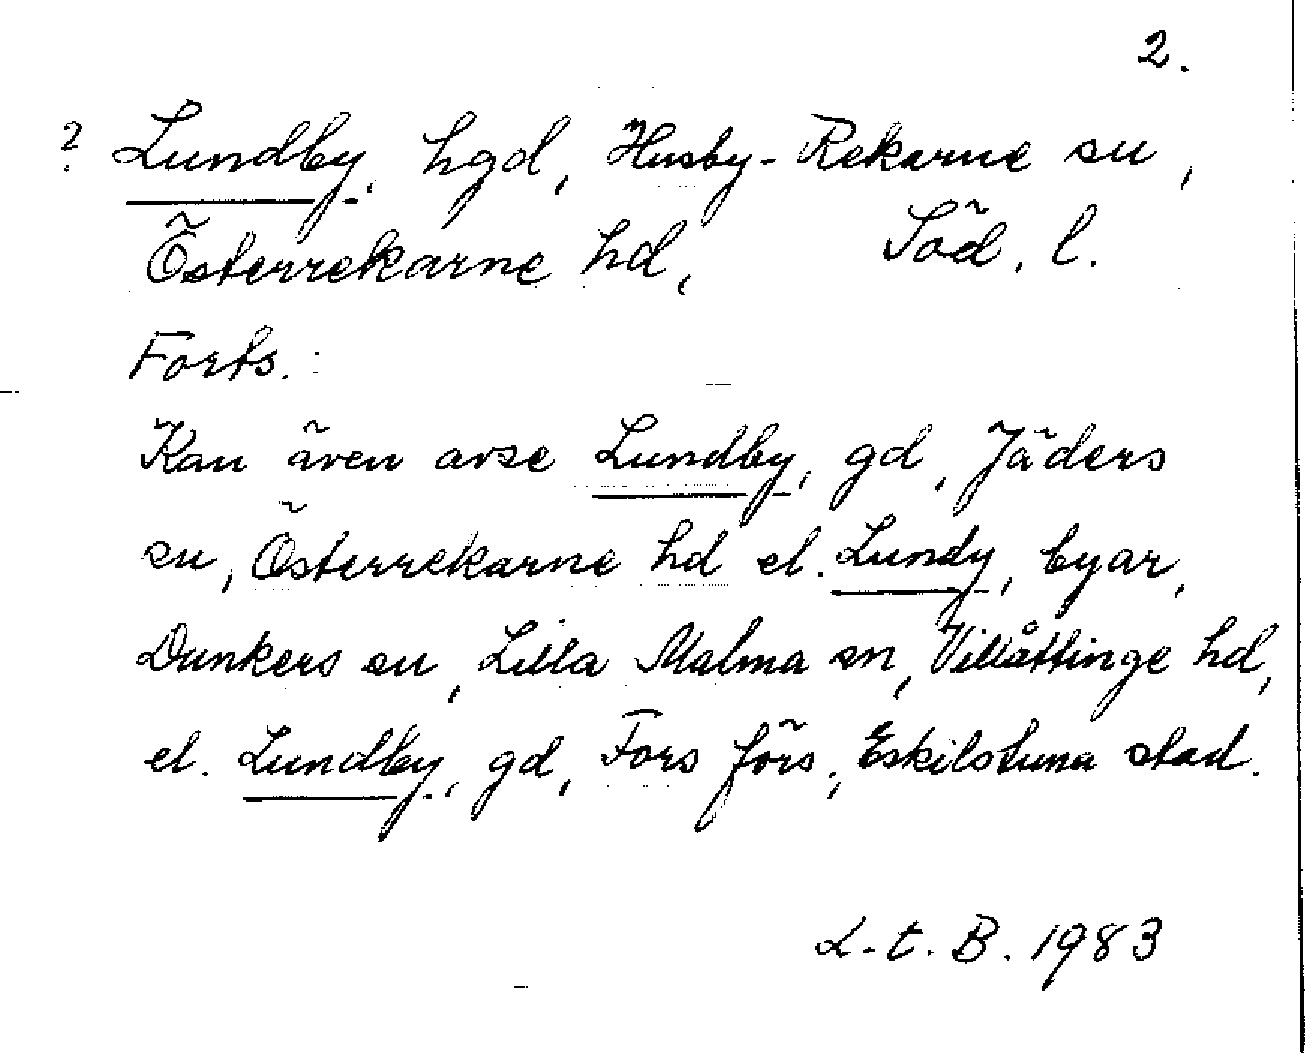 2.
? Lundby, hgd, Husby-Rekarne sn,
Österrekarne hd, Söd. l.
Forts.:
Kan även avse Lundby, gd, Jäders
sn, Österrekarne hd el. Lundy, byar,
Dunkers sn, Lilla Malma sn, Villåttinge hd,
el. Lundby, gd, Fors förs., Eskilstuna stad.
L.t.B. 1983